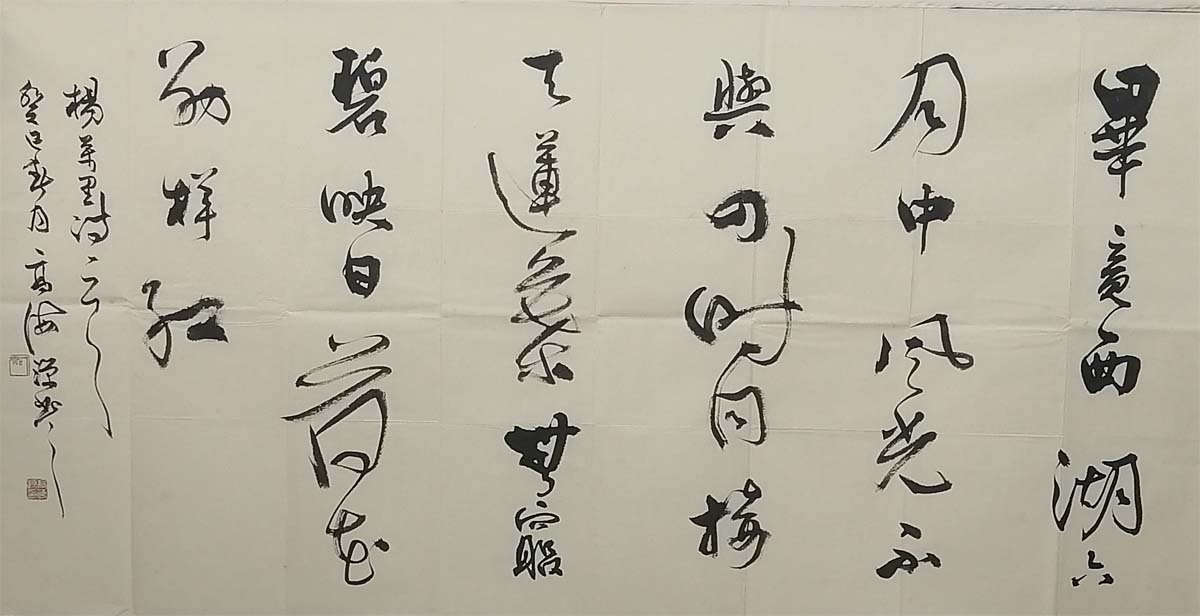 畢竟西湖六
月中風光不
與四時同接
天蓮葉無窮
碧映日荷花
别样紅
楊萬里詩一首
癸巳春月高海